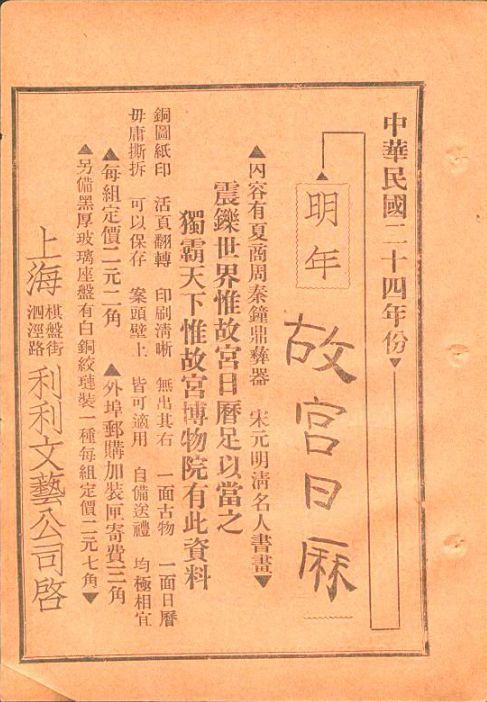 中華民國二十四年份▼
▲明年
故宮日厤
▲內容有夏商周秦鐘鼎彝器 宋元明清名人書畫▼
震鑠世界惟故宮日曆足以當之
獨霸天下惟故宮博物院有此資料
銅圖紙印 活頁翻轉 印刷清晰 無出其右 一面古物 一面日曆
毋庸撕拆 可以保存 案頭壁上 皆可適用 自備送禮 均極相宜
▲每組定價二元二角 ▲外埠郵購加裝匣寄費三角
▲另備黑厚玻璃座盤有白銅絞璉裝一種每組定價二元七角▼
上海
棋盤街
泗涇路
利利文藝公司啓